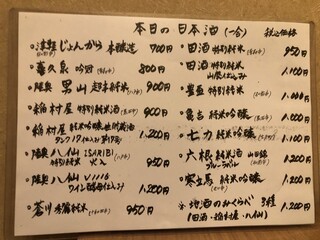 本日の日本酒(一合) 税込価格
・津軽じょんから 本醸造 700円
・喜久泉 吟冠 800円
・陸奥男山 超辛純米 900円
・稲村屋 特別純米酒 900円
・稲村屋 純米吟醸 1,200円
・陸奥八仙 ISARIBI 特別純米 火入 950円
・陸奥八仙 V1116 ワイン酵母仕込み 1,200円
950円
・田酒 特別純米 950円
・田酒 特別純米 山廃仕込み 1,100円
・豊盃 特別純米
・亀吉 純米吟醸 1,100円
・七力 純米吟醸 1,100円
・六根 純米酒 1,200円
・寒立馬 純米吟醸 1,200円
☆地酒のみくらべ 3種 1,200円
(田酒・稲村屋・八仙)